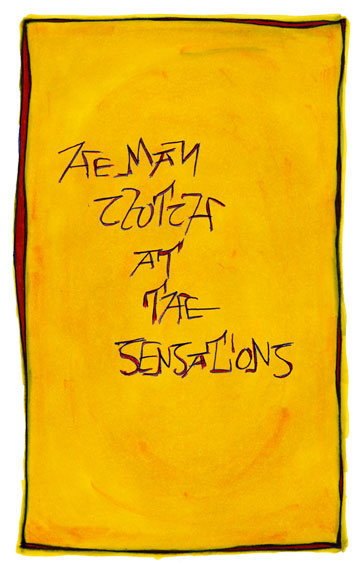 HE MAY
CLUTCH
AT
THE
SENSATIONS